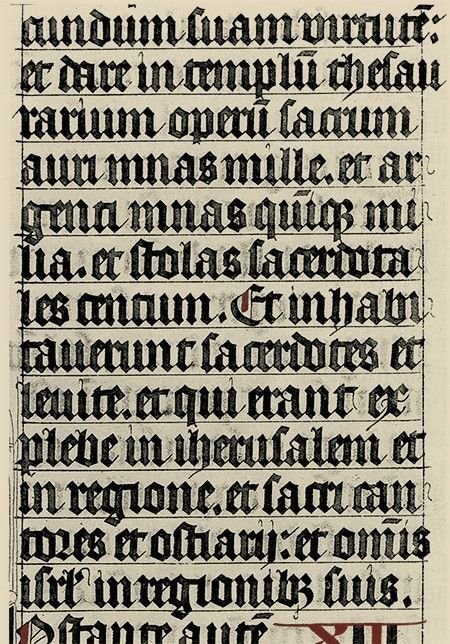 cundum suam virtutē:
et dare in templū thesau
rarium operū sacrum
auri mnas mille. et ar
genti mnas quīqꝫ mi
lia. et stolas sacerdota
les centum. Et inhabi
tauerunt sacerdotes et
leuite. et qui erant ex
plebe in iherusalem et
in regione. et sacri can
tores et ostiarij: et om̄is
isrl' in regionibꝫ suis.
Instante autē XIII